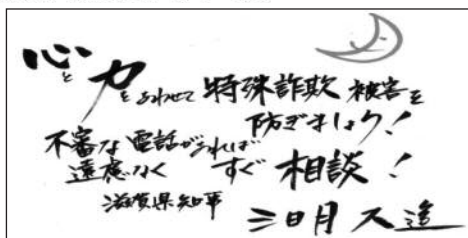 心と力をあわせて特殊詐欺被害を
防ぎましょう！
不審な電話があれば
遠慮なくすぐ相談！
滋賀県知事
三日月大造